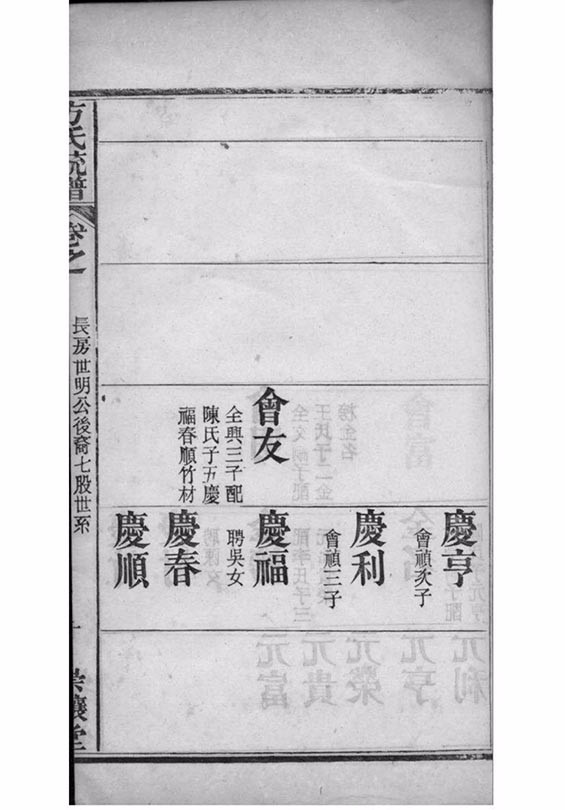 會友
全興三子配
陳氏子五慶
福春順竹材
慶亨
會禎次子
慶利
會禎三子
慶福
聘吳女
慶春
慶順
方氏統譜
卷之一
長房世明公後裔七股世系